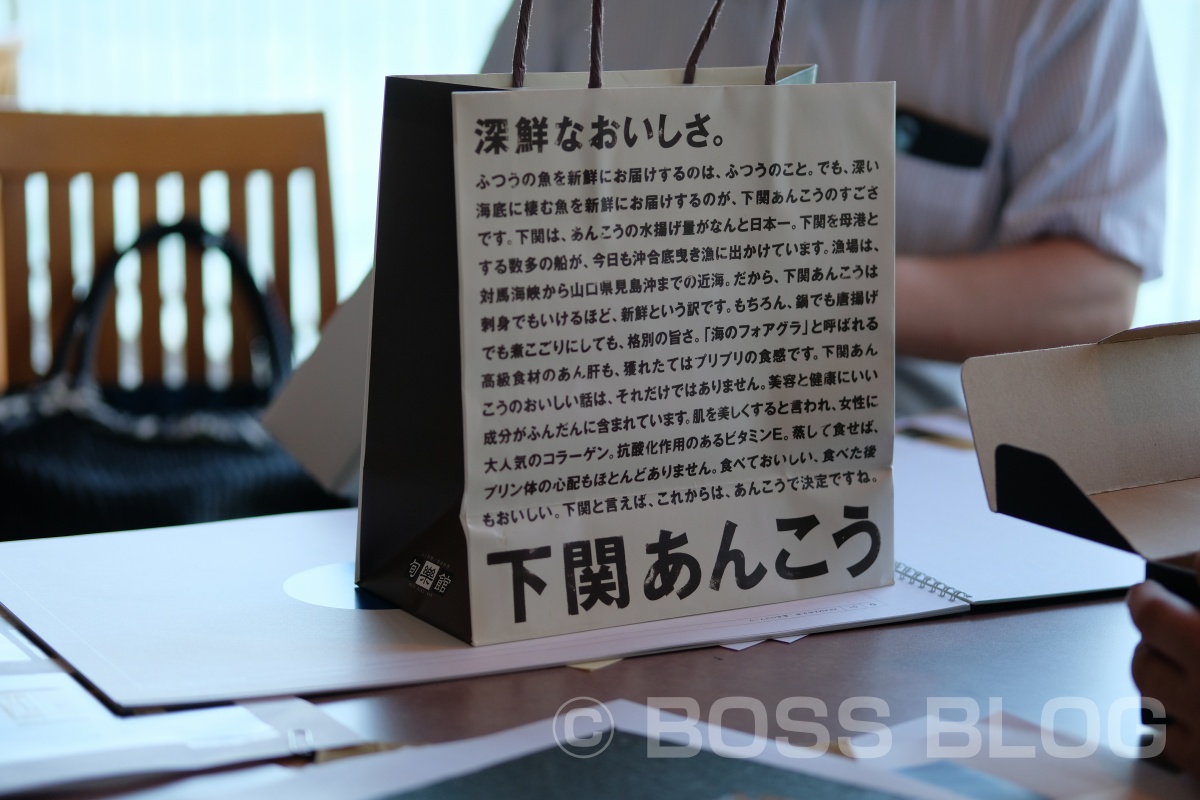 深鮮なおいしさ。
ふつうの魚を新鮮にお届けするのは、ふつうのこと。でも、深い
海底に棲む魚を新鮮にお届けするのが、下関あんこうのすごさ
です。下関は、あんこうの水揚げ量がなんと日本一。下関を母港と
する数多の船が、今日も沖合底曳き漁に出かけています。漁場は、
対馬海峡から山口県見島沖までの近海。だから、下関あんこうは
刺身でもいけるほど、新鮮という訳です。もちろん、鍋でも唐揚げ
でも煮こごりにしても、格別の旨さ。「海のフォアグラ」と呼ばれる
高級食材のあん肝も、獲れたてはプリプリの食感です。下関あん
こうのおいしい話は、それだけではありません。美容と健康にいい
成分がふんだんに含まれています。肌を美しくすると言われ、女性に
大人気のコラーゲン。抗酸化作用のあるビタミンE。蒸して食せば、
プリン体の心配もほとんどありません。食べておいしい、食べた後
もおいしい。下関と言えば、これからは、あんこうで決定ですね。
下関あんこう
旬楽館
© BOSS BLOG